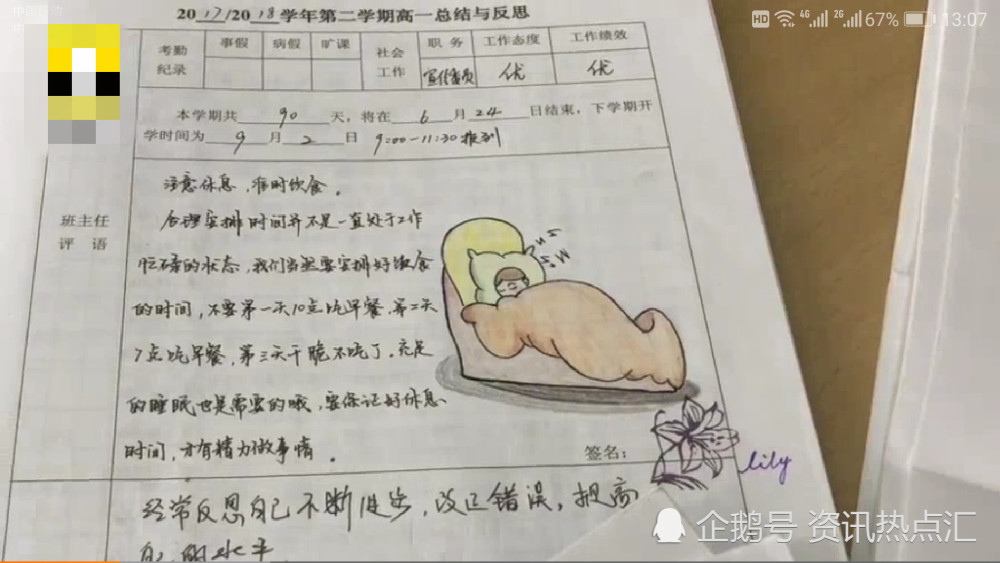 中国移动
HD 4G 2G 67% 13:07
2017/2018学年第二学期高一总结与反思
考勤纪录 事假 病假 旷课 社会工作 职务 工作态度 工作绩效
宣传委员 优 优
本学期共90天，将在6月24日结束，下学期开
学时间为9月2日 9:00-11:30报到
班主任评语
注意休息，准时饮食。
合理安排时间并不是一直处于工作
忙碌的状态，我们当然要安排好饮食
的时间，不要第一天10点吃早餐，第二天
7点吃早餐，第三天干脆不吃了。充足
的睡眠也是需要的哦，要保证好休息
时间，才有精力做事情。
签名：
lily
经常反思自己不断进步，改正错误，提高
自己的水平
企鹅号 资讯热点汇